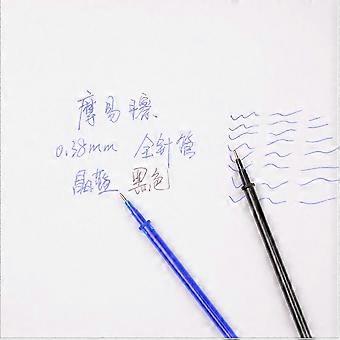 摩易擦
0.38mm 全针管
晶蓝 黑色